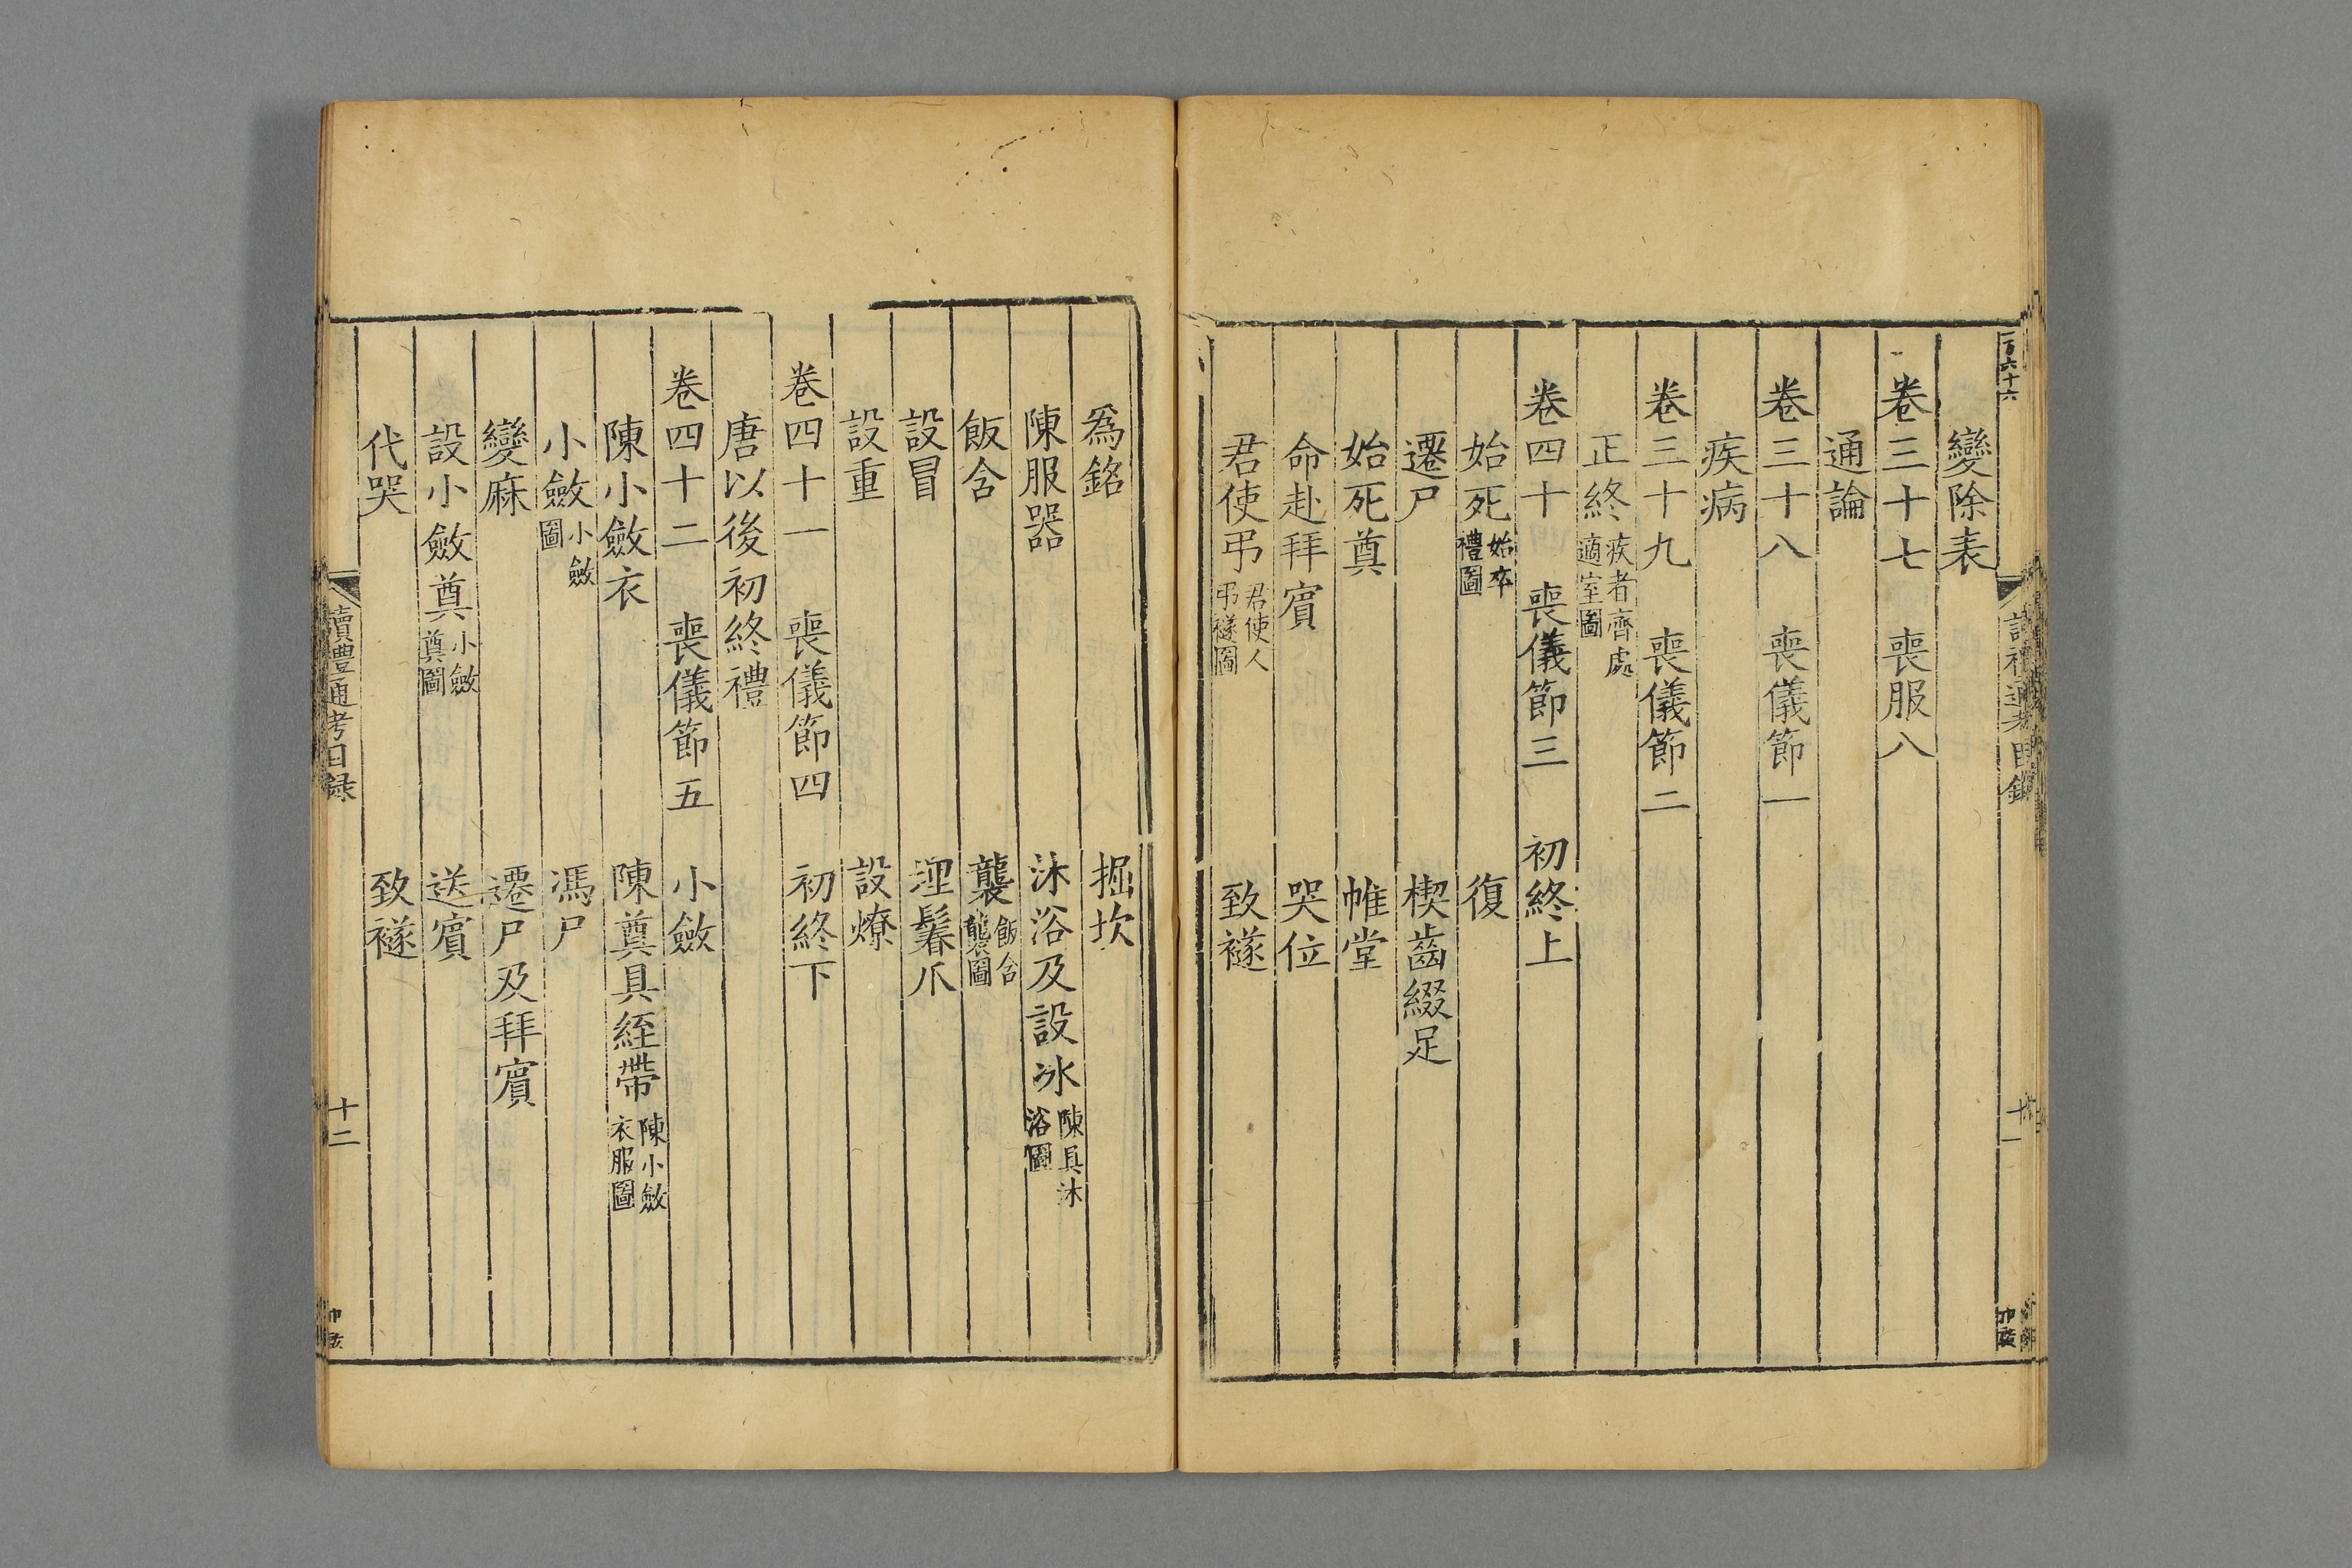 變除表
卷三十七 喪服八
通論
卷三十八 喪儀節一
疾病
卷三十九 喪儀節二
正終 疾者齊處適室圖
卷四十 喪儀節三 初終上
始死 始卒禮圖 復
遷尸 楔齒綴足
始死奠 帷堂
命赴拜賓 哭位
君使弔 君使人弔襚圖 致襚
爲銘 掘坎
陳服器 沐浴及設冰 陳具沐浴圖
飯含 襲 飯含襲圖
設冒 湮鬊爪
設重 設燎
卷四十一 喪儀節四 初終下
唐以後初終禮
卷四十二 喪儀節五 小斂
陳小斂衣 陳奠具絰帶 陳小斂衣服圖
小斂 小斂圖 馮尸
變麻 遷尸及拜賓
設小斂奠 小斂奠圖 送賓
代哭 致襚
讀禮通考目録
十二